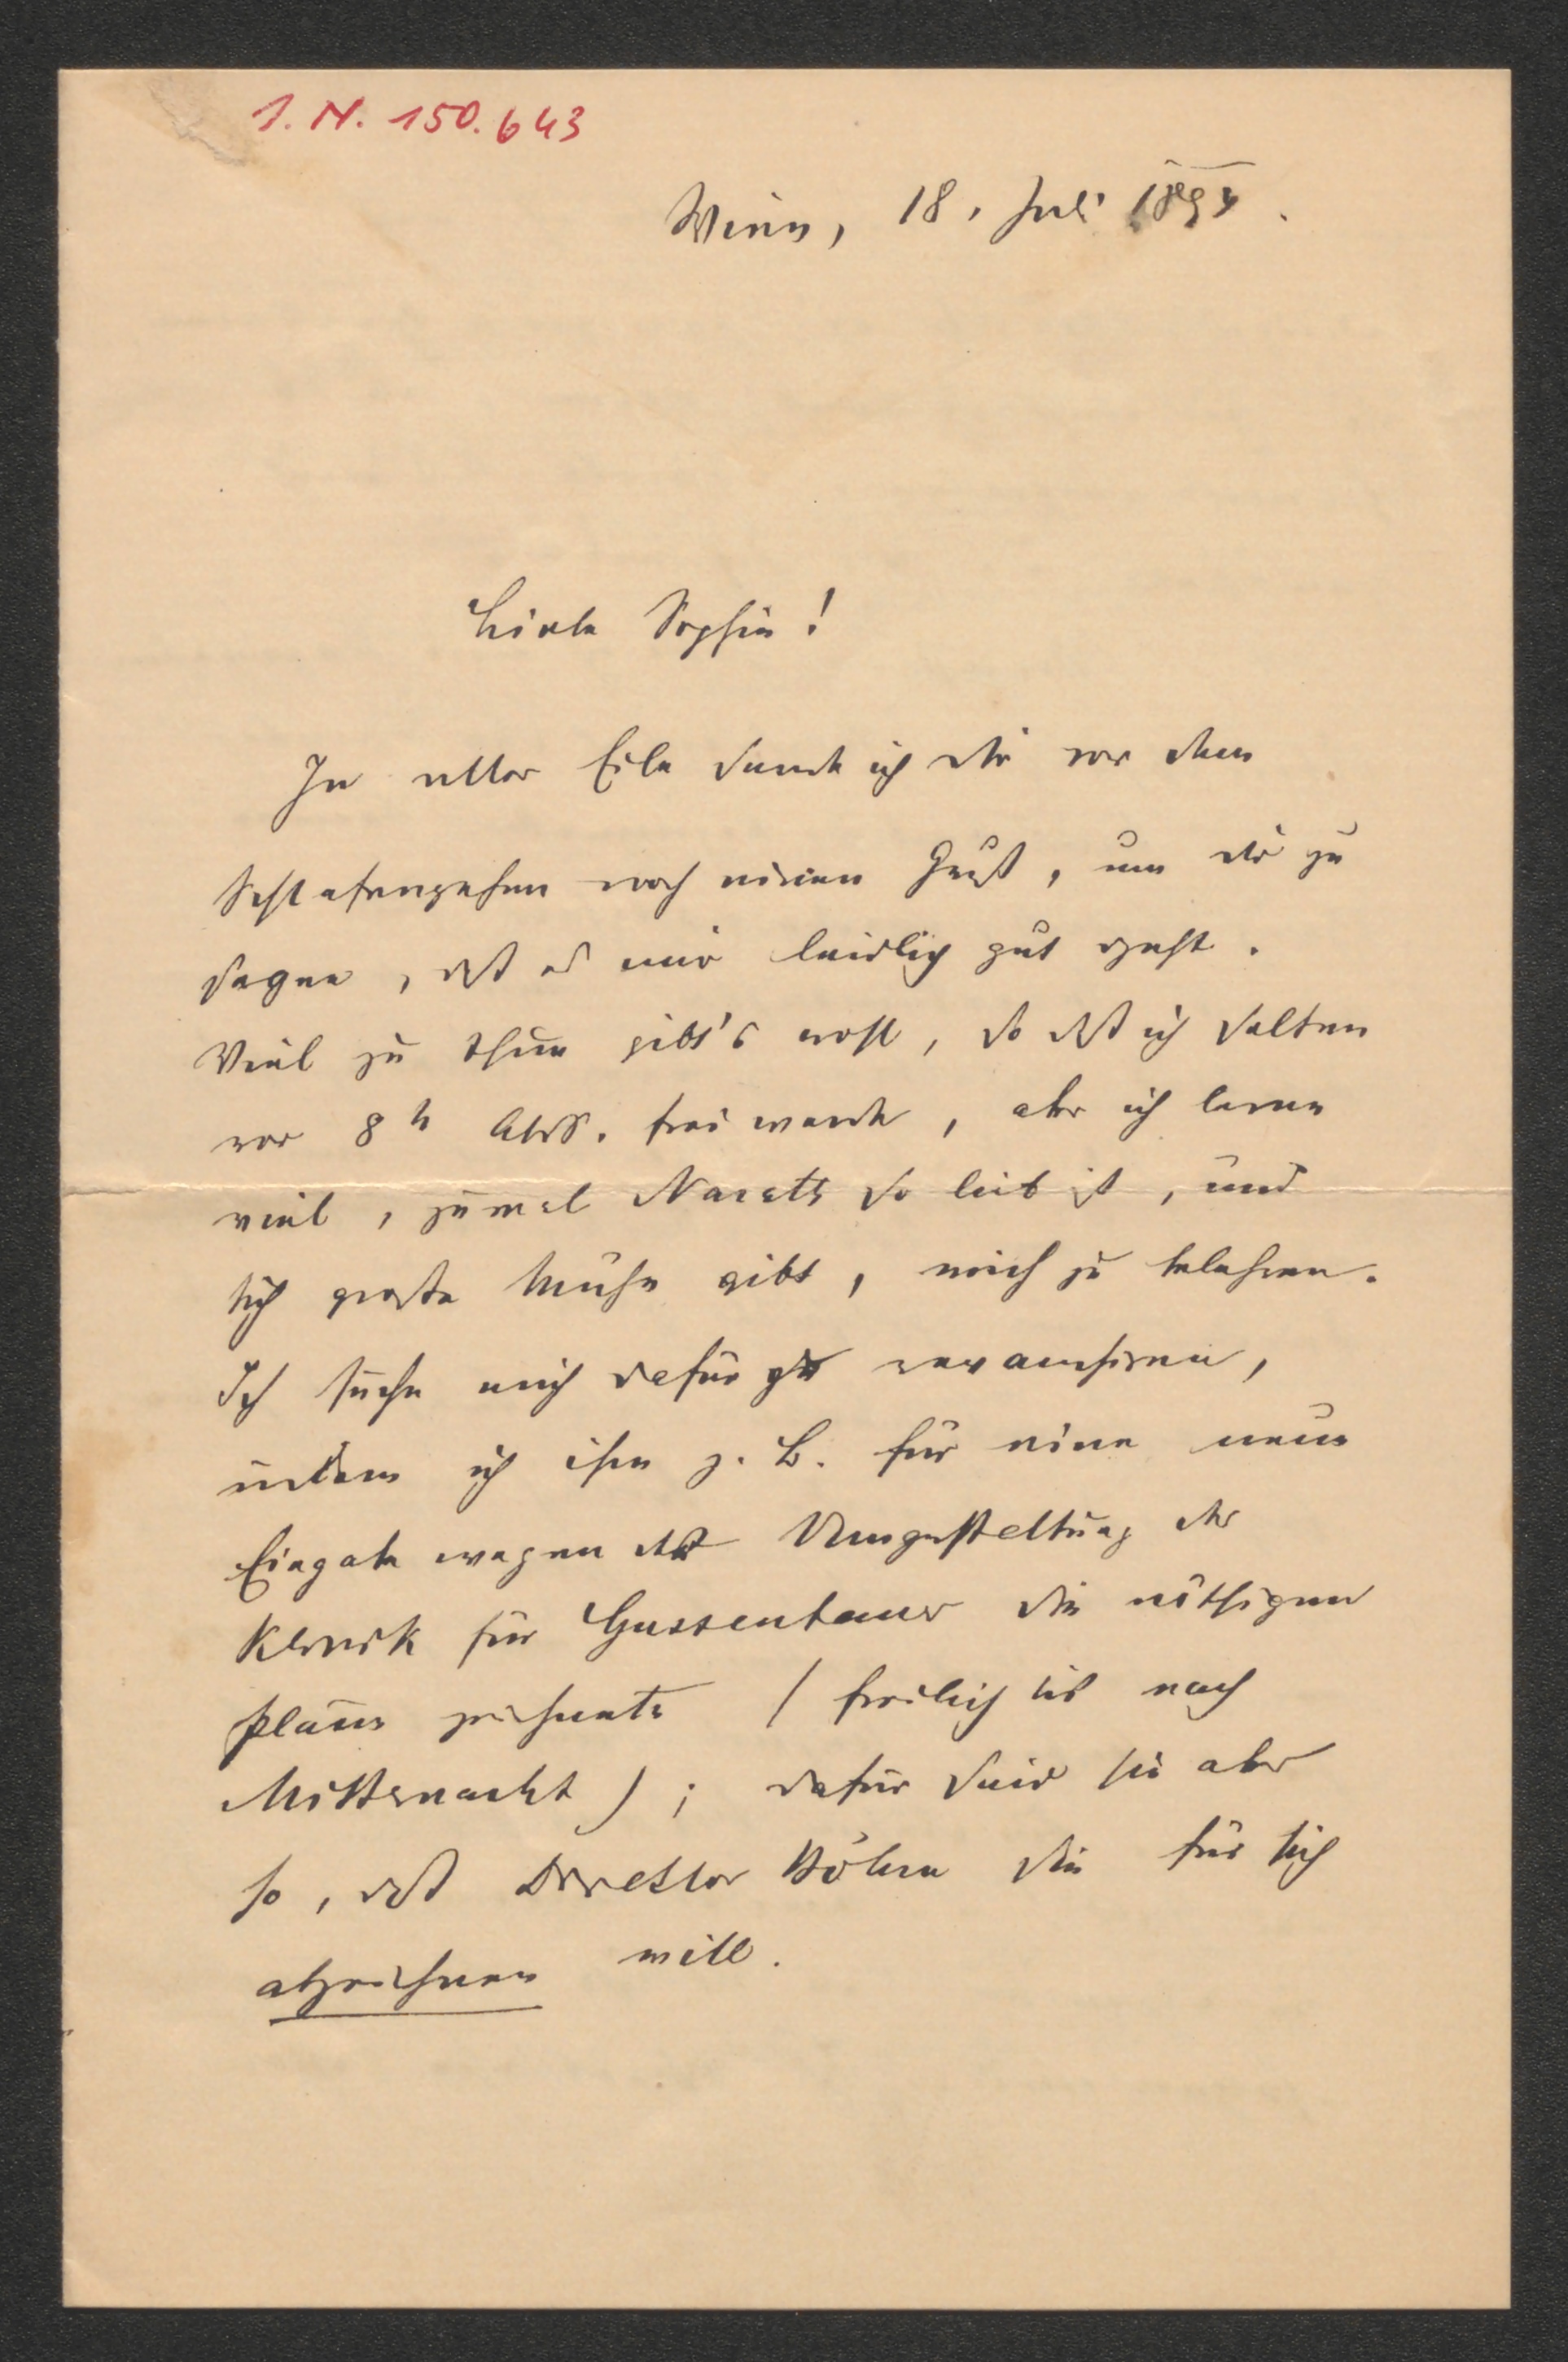 I. N. 150.643
Wien, 18. Juli 1894.
Liebe Sophie!
In aller Eile sende ich dir vor dem
Schlafengehen noch einen Gruß, um dir zu
sagen, daß es mir leidlich gut geht.
Viel zu thun gibt's wohl, so daß ich selten
vor 8h Abds. frei werde, aber ich lerne
viel, zumal Narath so lieb ist, und
sich große Mühe gibt, mich zu belehren.
Ich suche mich dafür zu revanchiren,
indem ich ihm z. B. für eine neue
Eingabe wegen der Umgestaltung der
Klinik für Gussenbauer die nöthigen
Pläne zeichnete (freilich bis nach
Mitternacht); dafür sind sie aber
so, daß Direktor Böhm sie für sich
abzeichnen will.